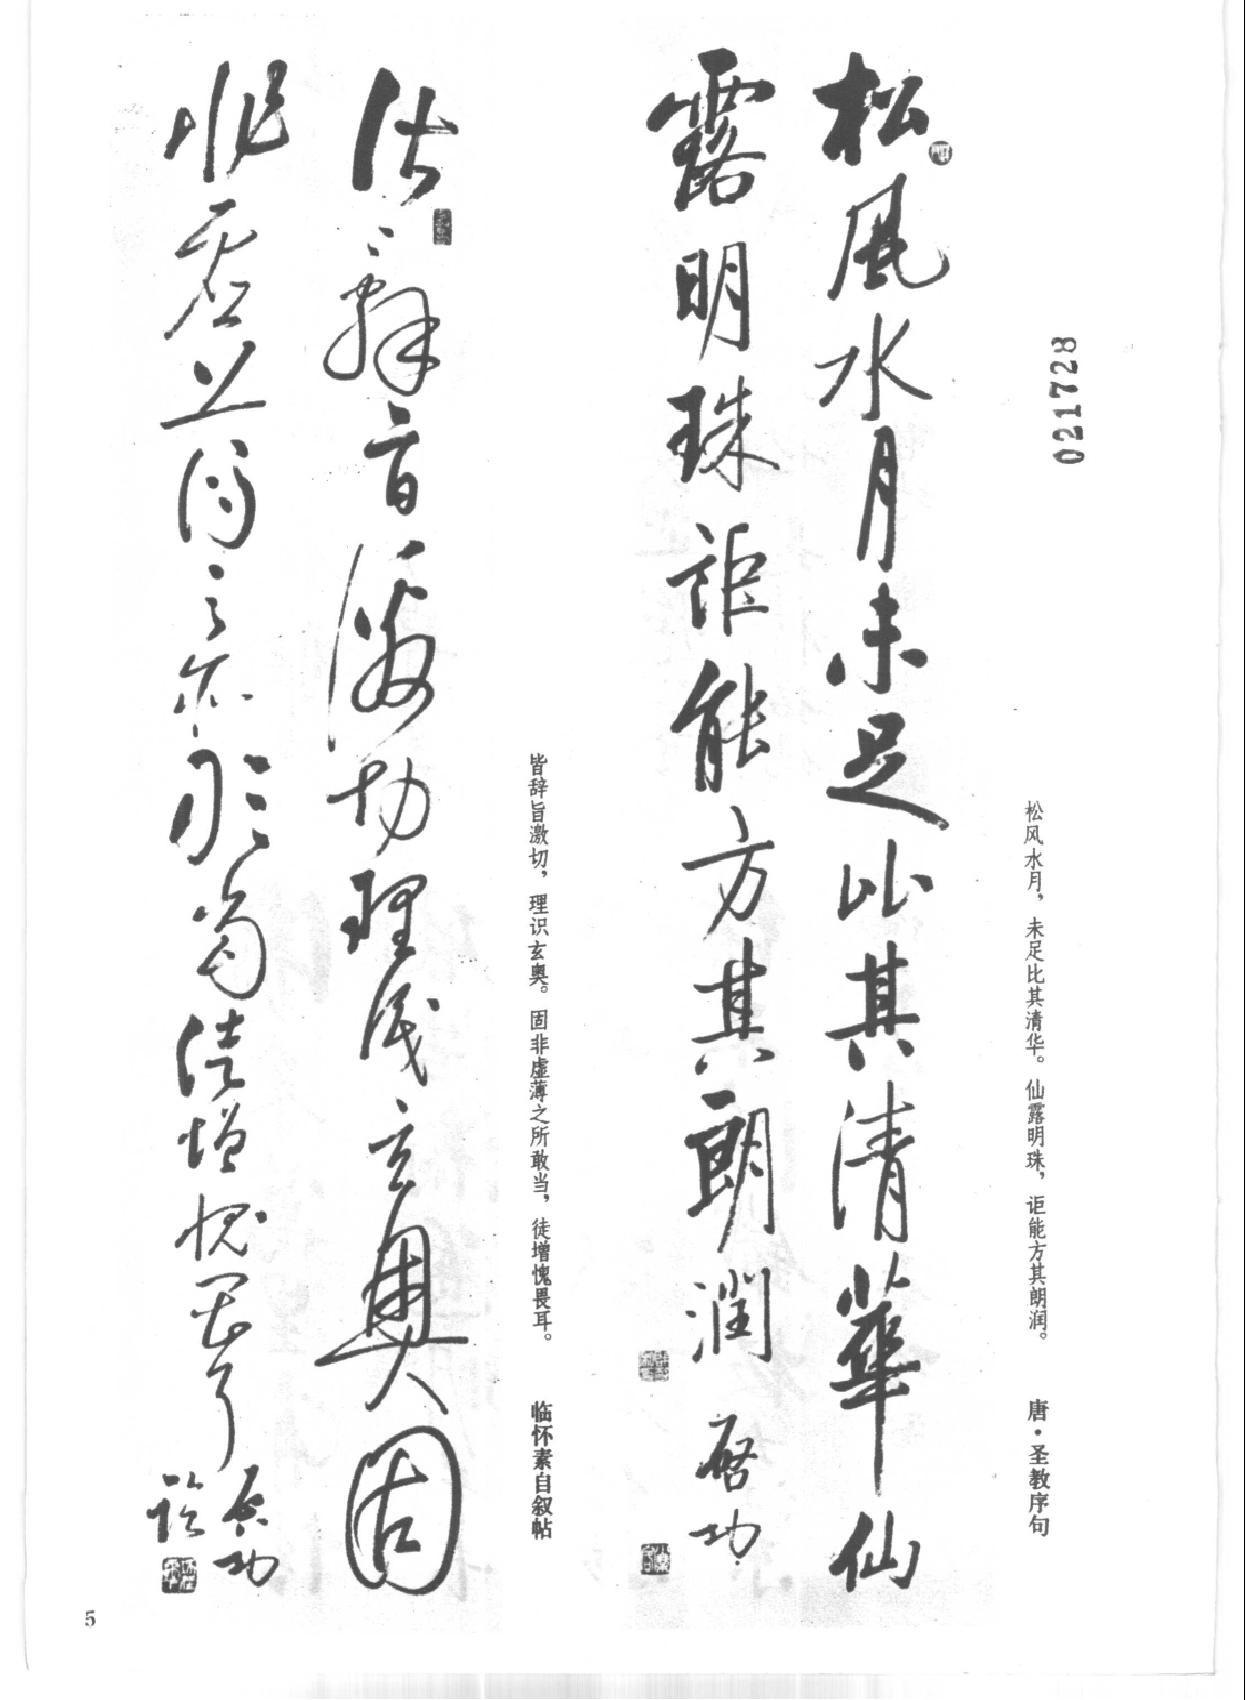 021728
松风水月，未足比其清华。仙露明珠，讵能方其朗润。
唐·圣教序句
松風水月未足比其清華仙
露明珠詎能方其朗潤
启功
皆辞旨激切，理识玄奥。固非虚薄之所敢当，徒增愧畏耳。
临怀素自叙帖
皆辭旨激切理識玄奧固
非虛蕩之所敢當徒增愧畏耳
启功
臨
5